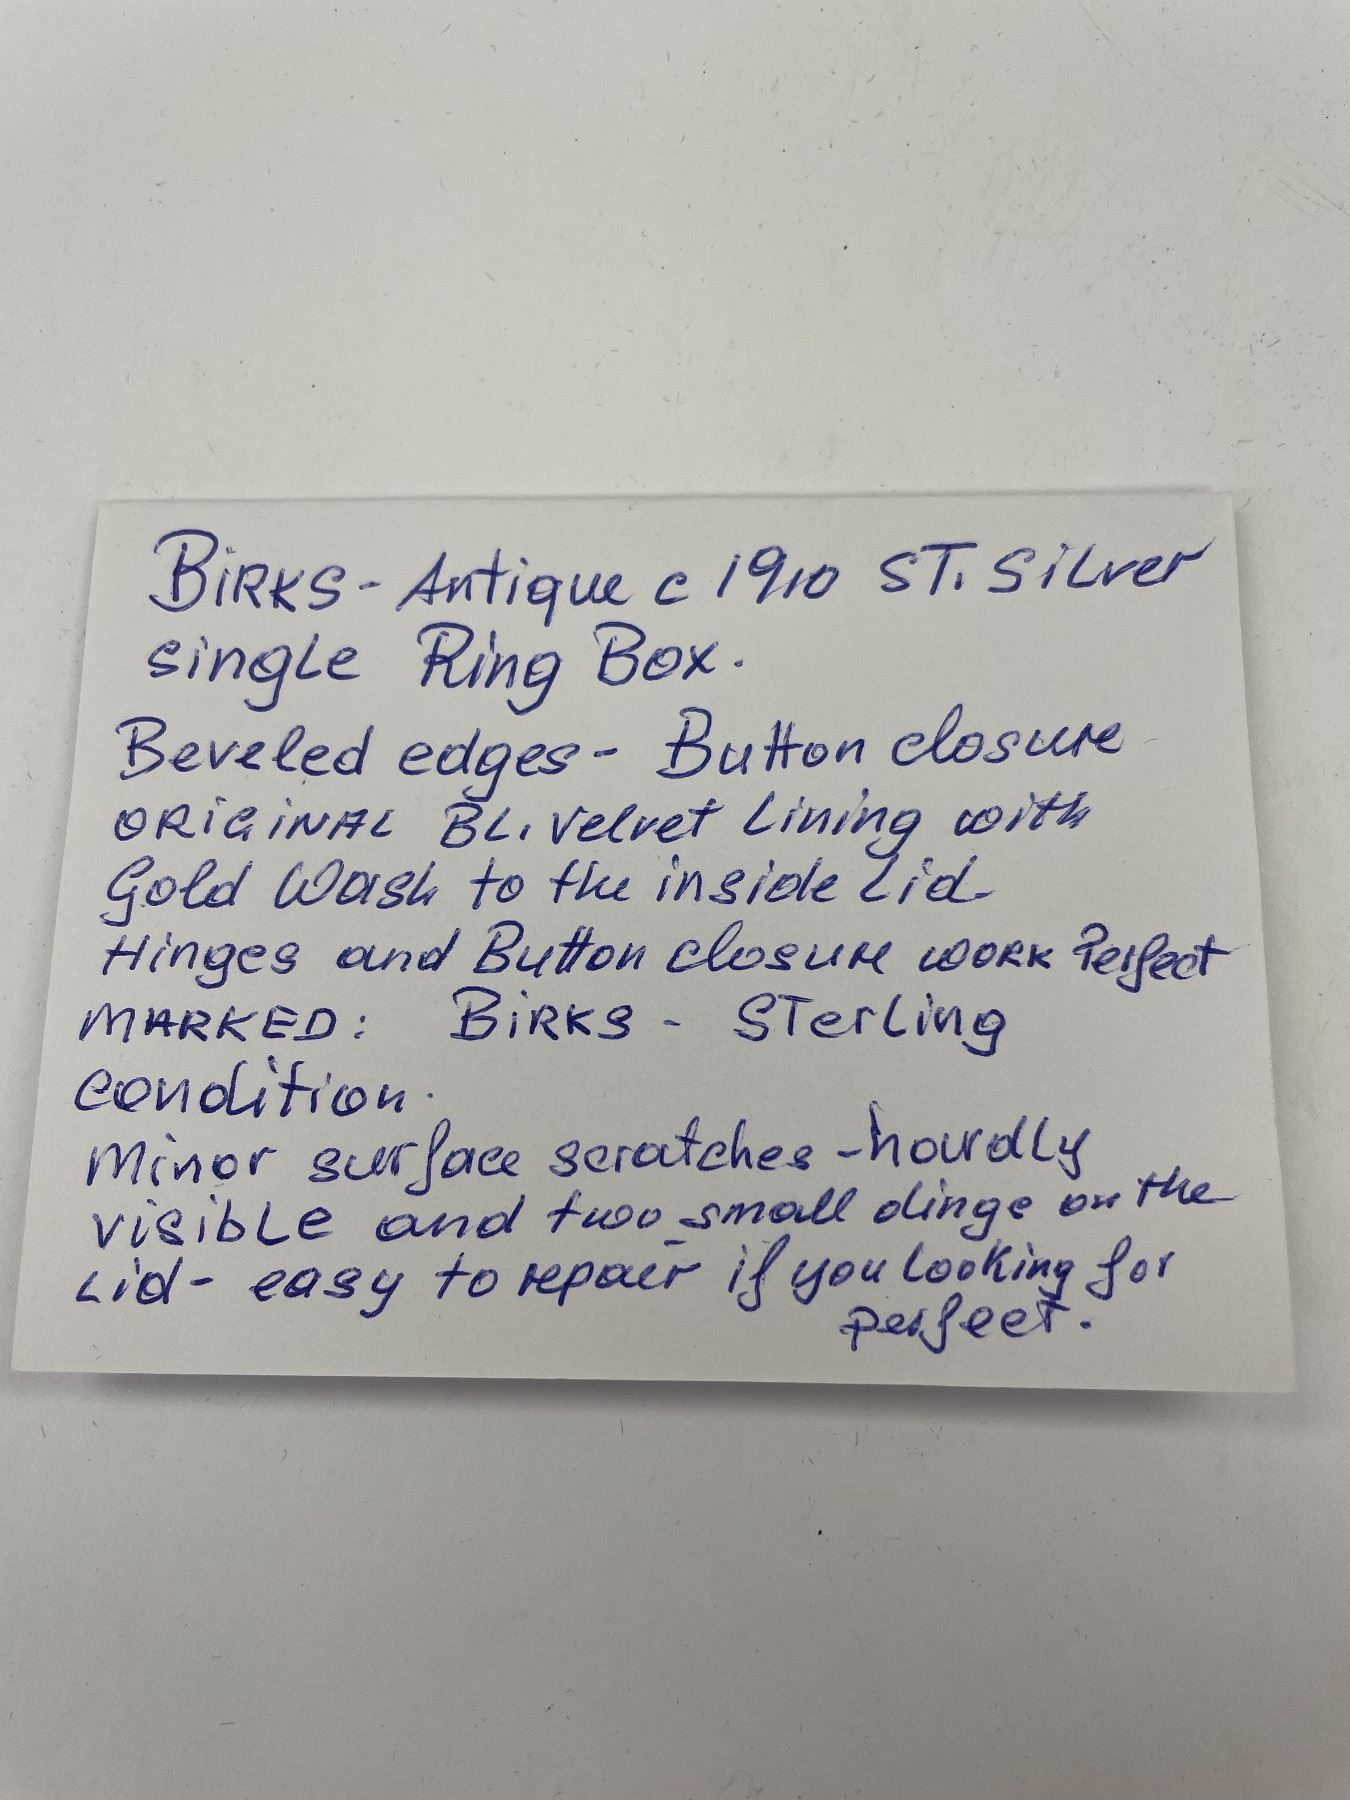 BIRKS - Antique c 1910 ST. SiLver
single Ring Box.
Beveled edges - Button closure
ORIGINAL BL. velvet Lining with
Gold Wash to the inside Lid
Hinges and Button closure work Perfect
MARKED: BIRKS - STerLing
condition.
Minor surface scratches - hardly
visible and two small dings on the
Lid - easy to repair if you Looking for
perfect.